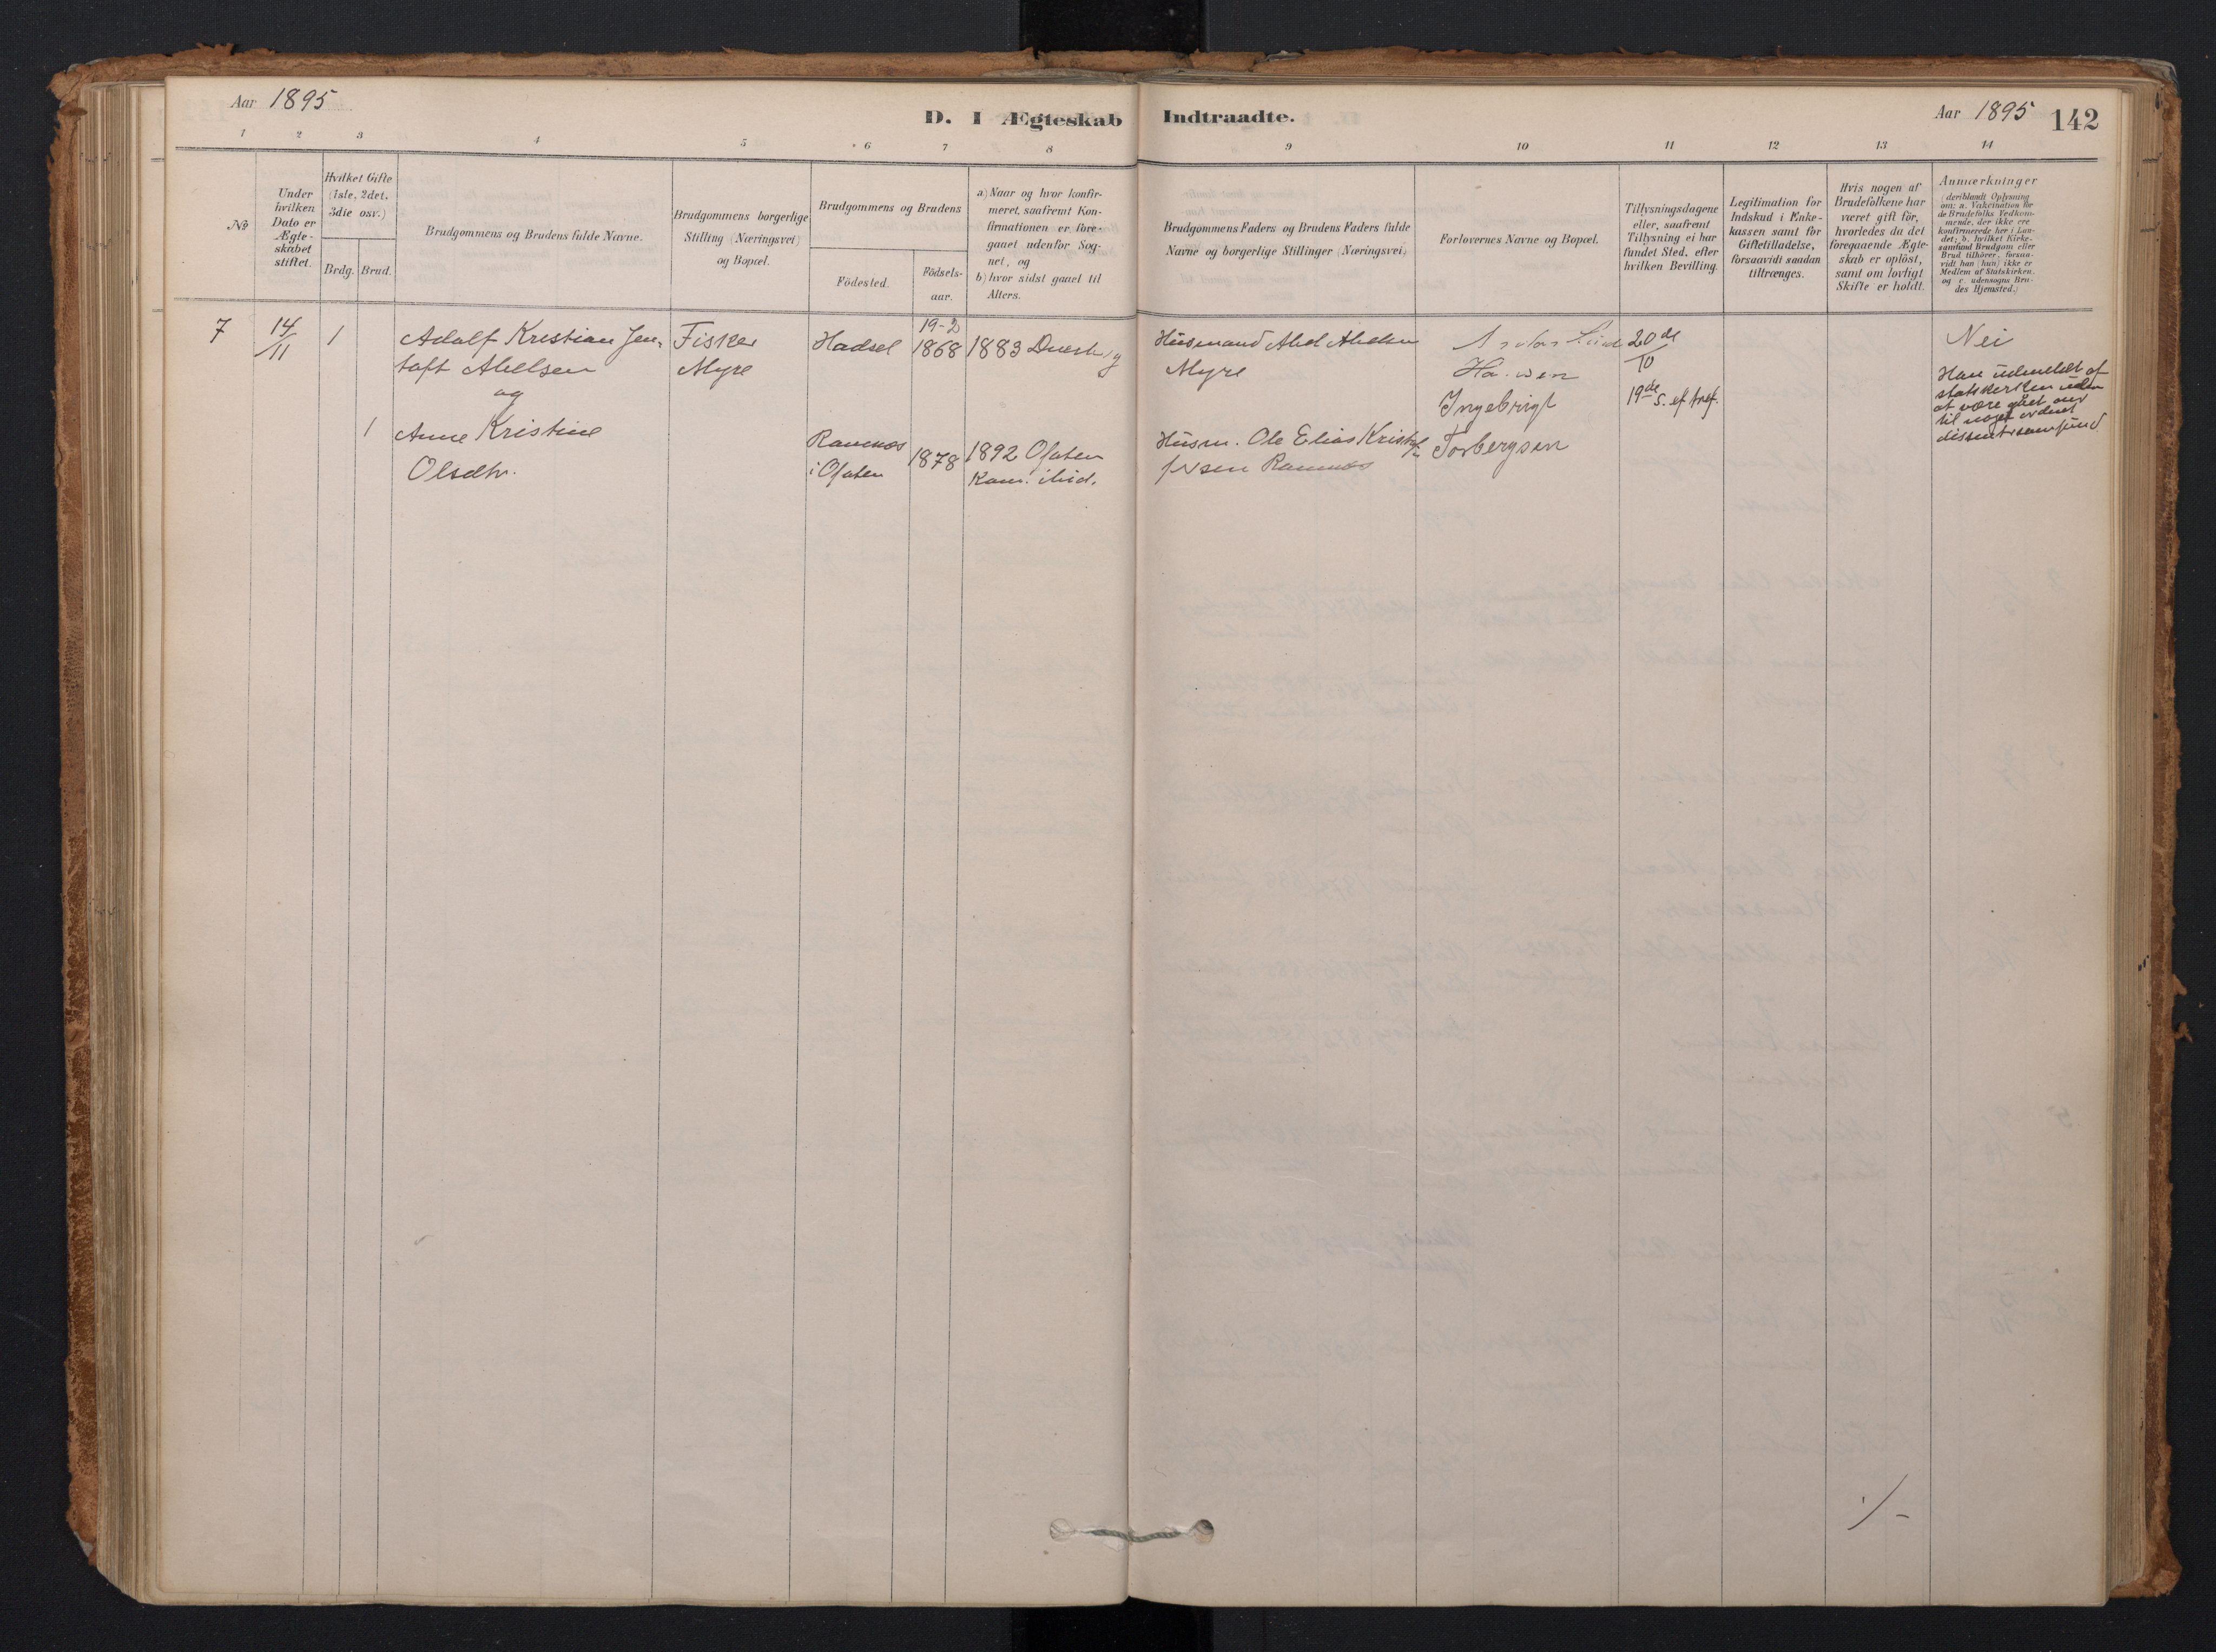 Aar 1895
D. I Ægteskab Indtraadte.
Aar 1895 142
1 2 3 4 5 6 7 8 9 10 11 12 13 14
No
Under
hvilken
Dato er
Ægte-
skabet
stiftet.
Hvilket Gifte
(1ste, 2det,
3die osv.)
Brdg. Brud.
Brudgommens og Brudens fulde Navne.
Brudgommens borgerlige
Stilling (Næringsvei)
og Bopæl.
Brudgommens og Brudens
Födested.
Födsels-
aar.
a) Naar og hvor konfir-
meret, saafremt Kon-
firmationen er fore-
gaaet udenfor Sog-
net, og
b) hvor sidst gaaet til
Alters.
Brudgommens Faders og Brudens Faders fulde
Navne og borgerlige Stillinger (Næringsvei)
Forlovernes Navne og Bopæl.
Tillysningsdagene
eller, saafremt
Tillysning ei har
fundet Sted, efter
hvilken Bevilling.
Legitimation for
Indskud i Enke-
kassen samt for
Giftetilladelse,
forsaavidt saadan
tiltrænges.
Hvis nogen af
Brudefolkene har
været gift för,
hvorledes da det
foregaaende Ægte-
skab er oplöst,
samt om lovligt
Skifte er holdt.
Anmærkninger
(deriblandt Oplysning
om: a. Vakcination for
de Brudefolks Vedkom-
mende, der ikke ere
konfirmerede her i Lan-
det; b. hvilket Kirke-
samfund Brudgom eller
Brud tilhörer, forsaa-
vidt han (hun) ikke er
Medlem af Statskirken,
og c. udensogns Bru-
des Hjemsted.)
7
14/11
1
Adolf Kristian Jen-
toft Abelsen
og
Fisker
Myre
Hadsel
19-2
1868
1883
Husmand Abel Abelsen
Myre
Ingebrigt
Torbergsen
20de
10
19de S. ef tref.
Nei
Han udmeldt af
statskirken uden
at være gået over
til noget ordnet
dissentersamfund
1
Anne Kristine
Olsdtr.
Ramnæs
i Ofoten
1878
1892 Ofoten
Kom. ibid.
Husm. Ole Elias Kristof-
fersen Ramnæs